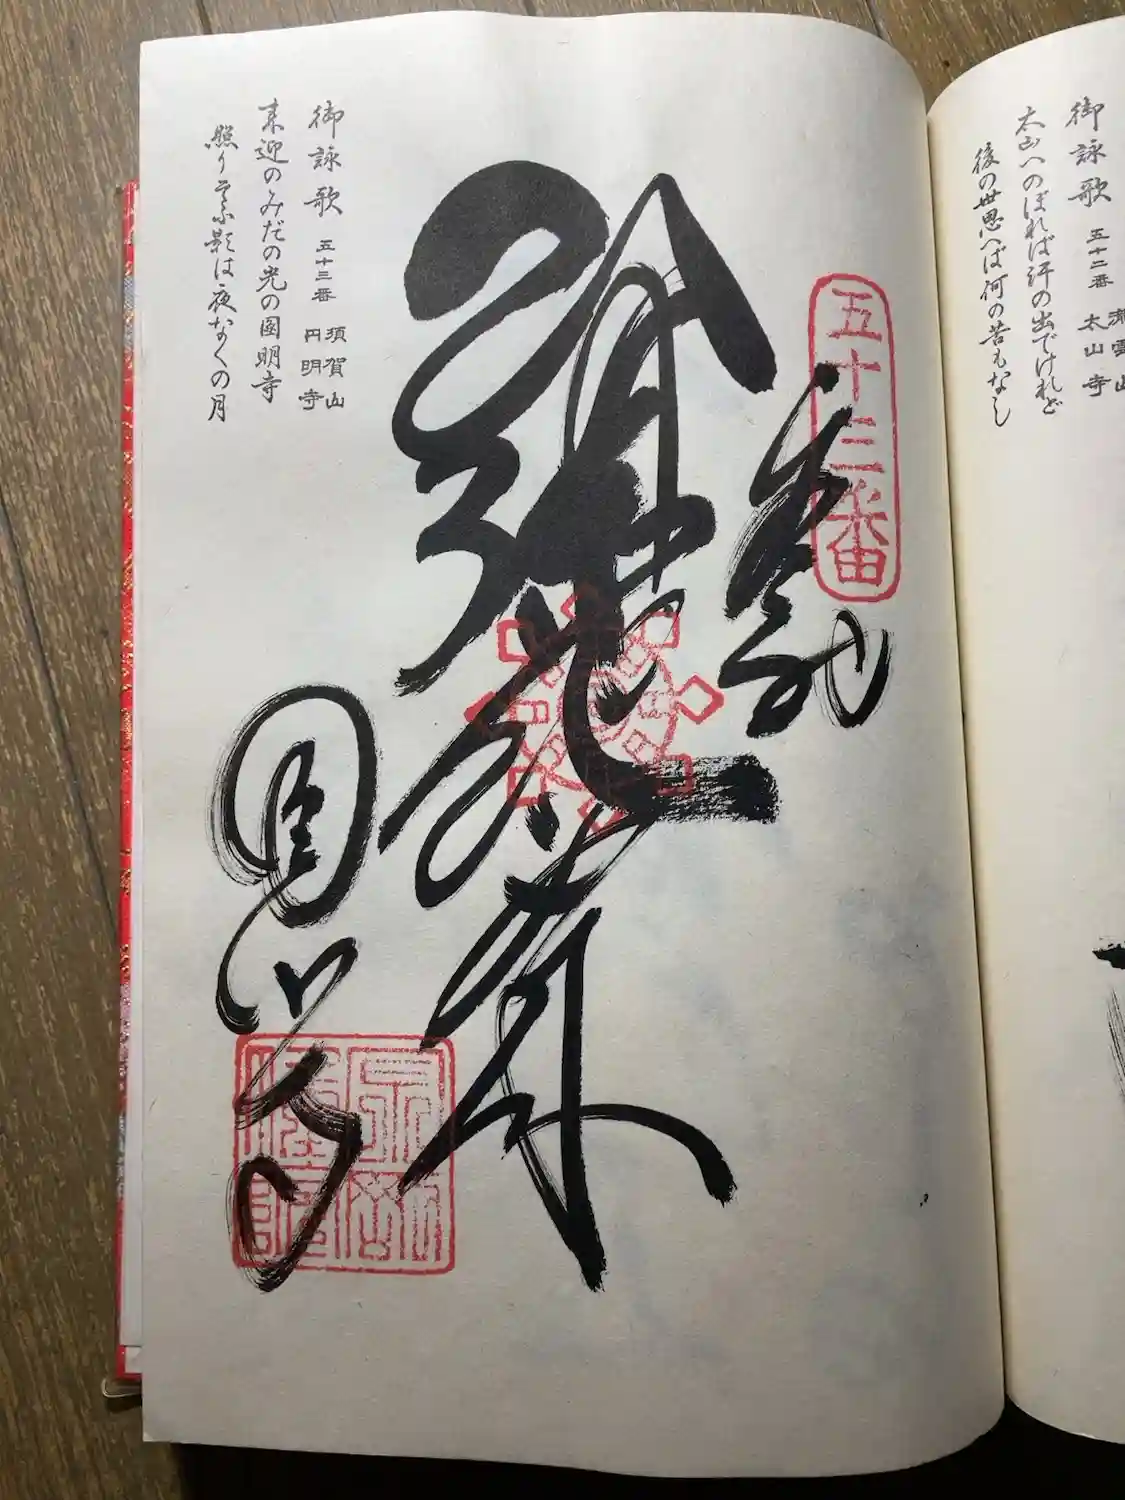 御詠歌 五十二番 太山寺
太山へのぼれば汗の出でけれど
後の世思へば何の苦もなし
五十三番
奉納
阿弥陀如来
圓明寺
御詠歌 五十三番 須賀山 円明寺
来迎のみだの光の圓明寺
照りそふ影は夜なくの月